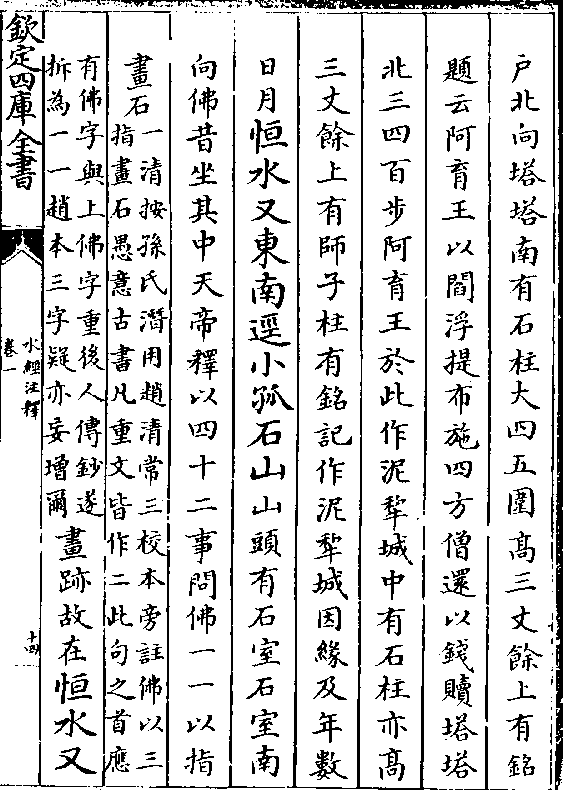 戸北向塔塔南有石柱大四五圍髙三丈餘上有銘
題云阿育王以閻浮提布施四方僧還以錢贖塔塔
北三四百步阿育王於此作泥犂城中有石柱亦髙
三丈餘上有師子柱有銘記作泥犂城因緣及年數
日月恒水又東南逕小孤石山山頭有石室石室南
向佛昔坐其中天帝釋以四十二事問佛一一以指
畫石一清按孫氏潛用趙清常三校本旁註佛以三
指畫石愚意古書凡重文皆作二此句之首應
有佛字與上佛字重後人傳鈔遂
拆為一一趙本三字疑亦妄增爾畫跡故在恒水又
欽定四庫全書
水經注釋
卷一
十四